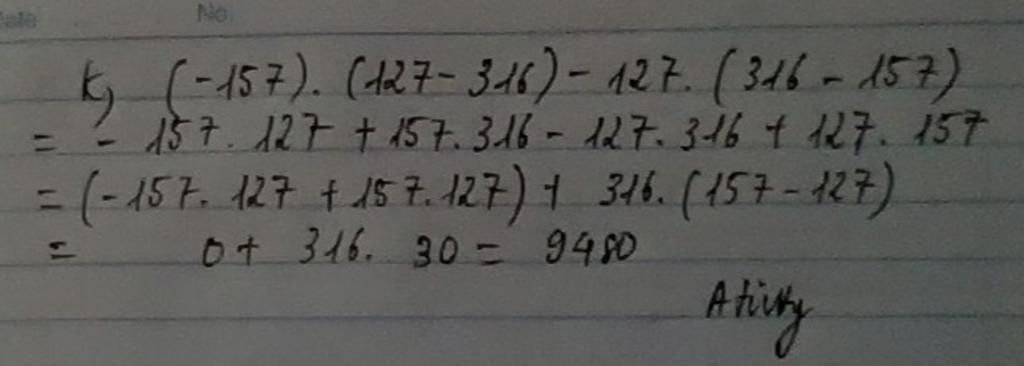 No.
k, (-157). (127 - 316) - 127. (316 - 157)
= - 157. 127 + 157. 316 - 127. 316 + 127. 157
= (-157. 127 + 157. 127) + 316. (157 - 127)
= 0 + 316. 30 = 9480